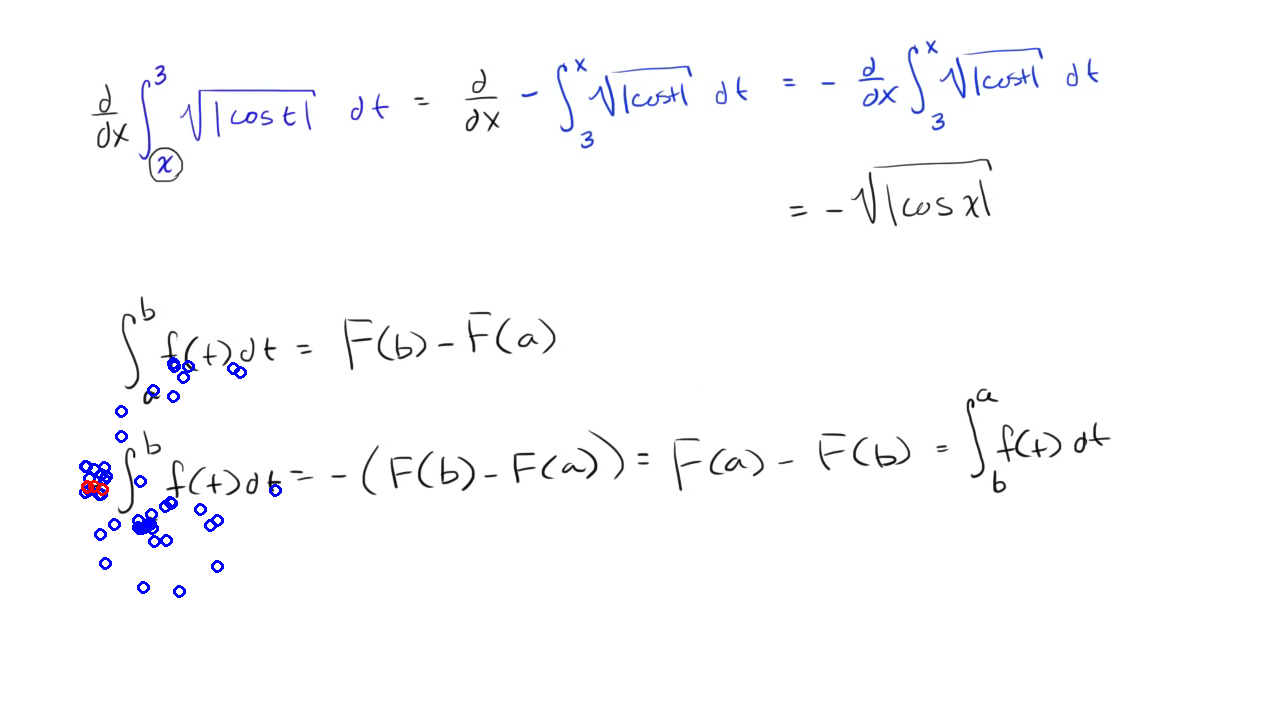 d/dx ∫_x^3 √|cos t| dt = d/dx - ∫_3^x √|cos t| dt = - d/dx ∫_3^x √|cos t| dt
= - √|cos x|
∫_a^b f(t) dt = F(b) - F(a)
∫^b f(t) dt = - (F(b) - F(a)) = F(a) - F(b) = ∫_b^a f(t) dt